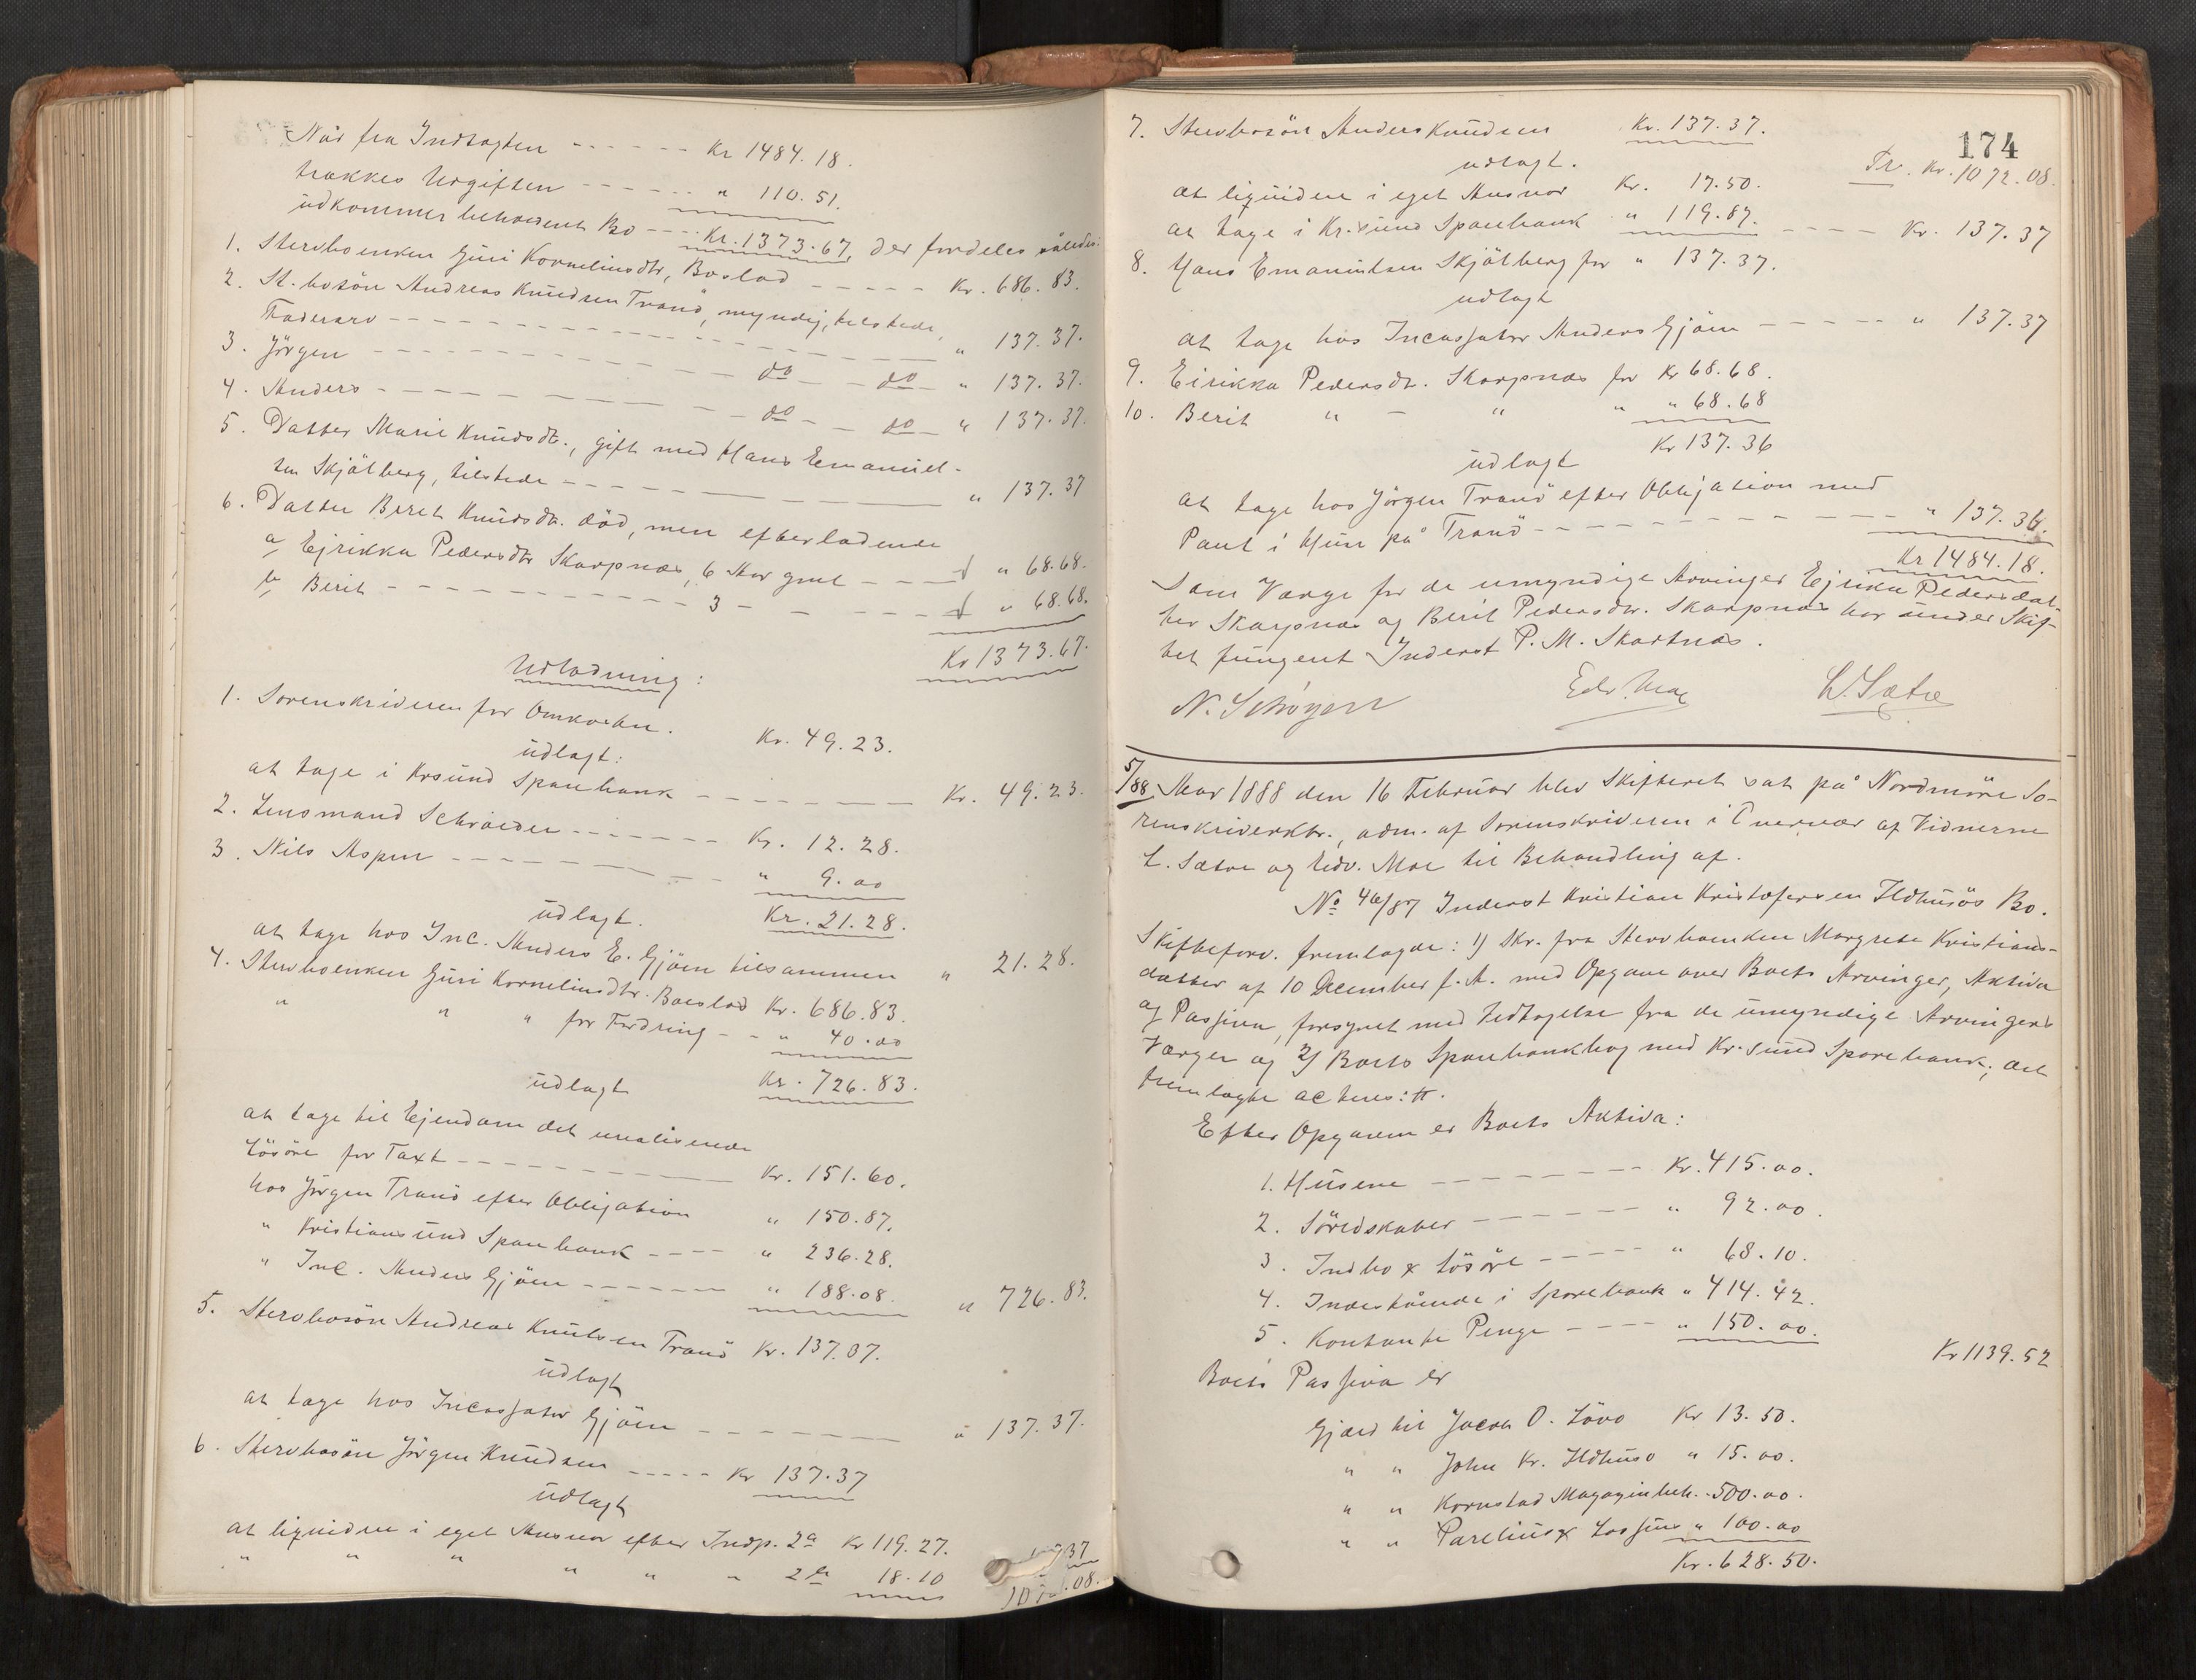 Når fra Indtægten - - - - - - Kr 1484.18.
trækkes Udgiften - - - - - - " 110.51.
udkommer beholdent Bo - - - Kr. 1373.67, der fordeles således:
1. Stervboenken Guri Korneliusdtr, Boslod - - - - - Kr. 686.83.
2. St.bosön Andreas Knudsen Tranö, myndig, tilstede,
Faderarv - - - - - - - - - " 137.37.
3. Jörgen - - - - - - do - - do - " 137.37.
4. Anders - - - - - - do - - do - " 137.37.
5. Datter Marit Knudsdtr., gift med Hans Emanuel-
sen Skjölberg, tilstede - - - - - - " 137.37
6. Datter Berit Knudsdtr. död, men efterladende
a, Ejrikka Pedersdtr Skarpnæs, 6 Aar gml - - - " 68.68.
b, Berit - - - - - - 3 - - - - - " 68.68.
Kr 1373.67.
Udlodning:
1. Sorenskriveren for Omkostn. Kr. 49.23.
udlagt:
at tage i Krsund Sparebank - - - - - - Kr. 49.23.
2. Lensmand Schrøder - - - - - - Kr. 12.28.
3. Nils Aspen - - - - - - " 9.00
udlagt. Kr. 21.28.
at tage hos Inc. Anders E. Gjöen tilsammen " 21.28.
4. Stervboenken Guri Kornelinsdtr. Boeslod Kr. 686.83.
" " " for Fordring - - " 40.00
udlagt Kr. 726.83.
at tage til Ejendom det uralisende
Lösöre for Taxt - - - - - - Kr. 151.60.
hos Jörgen Tranö efter Obligation " 150.87.
" Kristiansund Sparebank - - - - " 236.28.
" Inc. Anders Gjöen - - - - - - " 188.08. " 726.83.
5. Stervbosön Andreas Knudsen Tranö Kr. 137.37.
udlagt
at tage hos Incassator Gjöen - - - - - - " 137.37.
6. Stervbosön Jörgen Knudsen - - - - - Kr 137.37
udlagt
at liqvidere i eget Ansvar efter Indp. 2a Kr 119.27.
" " " " " " 2b 18.10 37
08.
174
7. Stervbosön Anders Knudsen Kr. 137.37. Tr. Kr. 1072.08.
udlagt.
at liqvidere i eget Ansvar Kr. 17.50.
at tage i Kr.sund Sparebank " 119.87. - - - - Kr. 137.37
8. Hans Emanuelsen Skjölberg for " 137.37.
udlagt
at tage hos Incassator Anders Gjöen - - - - - " 137.37
9. Eirikka Pedersdtr. Skarpnæs for Kr 68.68.
10. Berit " - " " " 68.68
Kr 137.36
udlagt
at tage hos Jörgen Tranö efter Obligation med
Pant i Hus på Tranö - - - - - - - - - " 137.36.
Kr 1484.18.
Som Værge for de umyndige Arvinger Ejrikka Pedersdat-
ter Skarpnæs og Berit Pedersdtr. Skarpnæs har under Skif-
tet fungeret Inderst P. M. Skartnæs.
N. Schøyen Edv. Moe L. Sætre
5/88, Aar 1888 den 16 Februar blev Skifteret sat på Nordmöre So-
renskriverktr., adm. af Sorenskriveren i Overvær af Vidnerne
L. Sætre og Edv. Moe til Behandling af.
No 46/87 Inderst Kristian Kristofersen Ildhusös Bo.
Skifteforv. fremlagde: 1) Skr. fra Stervboenken Margrete Kristians-
datter af 10 December f. A. med Opgave over Boets Arvinger, Aktiva
og Passiva, forsynet med Vedtagelse fra de umyndige Arvingers
Værger og 2) Boets Sparebankbog med Kr.sund Sparebank; det
fremlagte acteres: tt.
Efter Opgaven er Boets Aktiva:
1. Husene - - - - - - Kr. 415.00.
2. Söredskaber - - - - - - " 92.00.
3. Indbo & Lösöre - - - - - " 68.10.
4. Indestående i Sparebank " 414.42.
5. Kontante Penge - - - - " 150.00. Kr 1139.52
Boets Passiva er
Gjæld til Jacob O. Lövö Kr 13.50.
" " John Kr. Ildhusö " 15.00.
" " Kornstad Magazinbeh. - 500.00.
" " Parelius & Lossius " 100.00
Kr. 628.50.